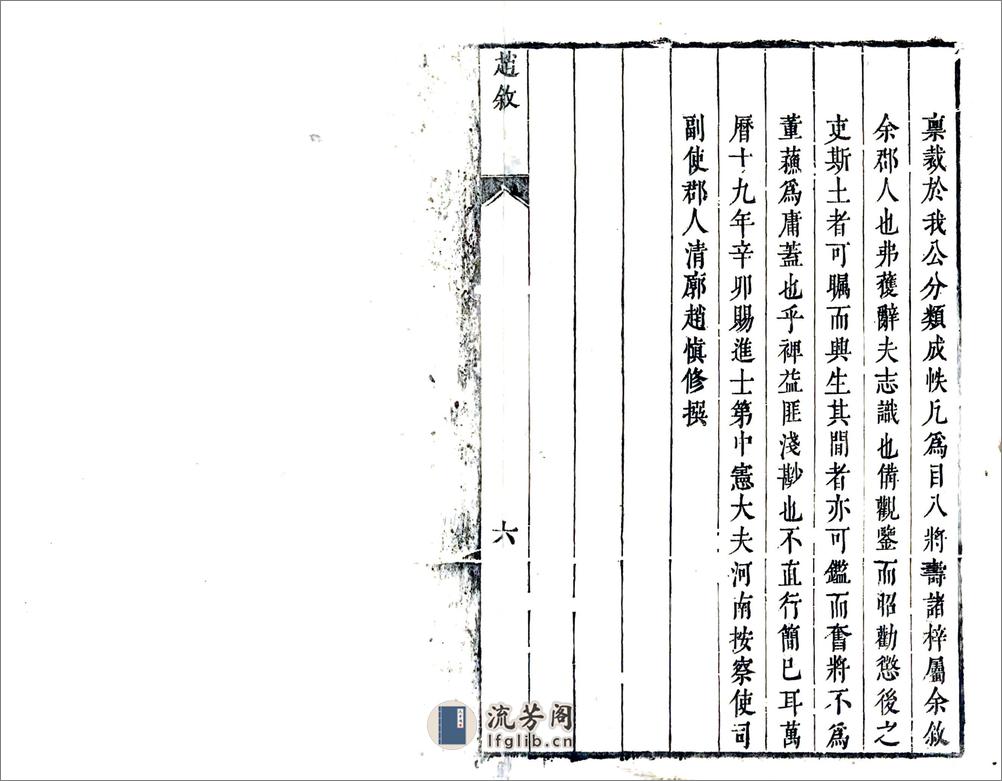 稟裁於我公分類成帙凡爲目八將壽諸梓屬余敘
余郡人也弗獲辭夫志識也備觀鑒而昭勸懲後之
吏斯土者可矚而興生其閒者亦可鑑而奮將不爲
董蘓爲庸葢也乎裨益匪淺尠也不直行簡已耳萬
曆十九年辛卯賜進士第中憲大夫河南按察使司
副使郡人清廓趙慎修撰
趙敘
六
流芳阁
lfglib.cn